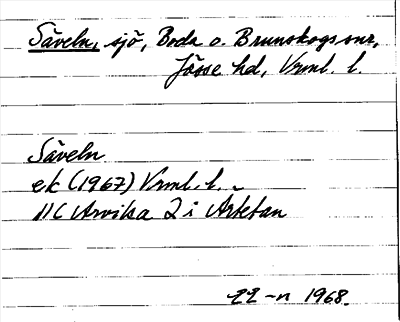 Säveln, sjö, Boda o. Brunskogs snr,
Jösse hd, Vrml. l.
Säveln
ek (1967) Vrml. l.
11C Arvika 2 i Årtetan
EE-n 1968.